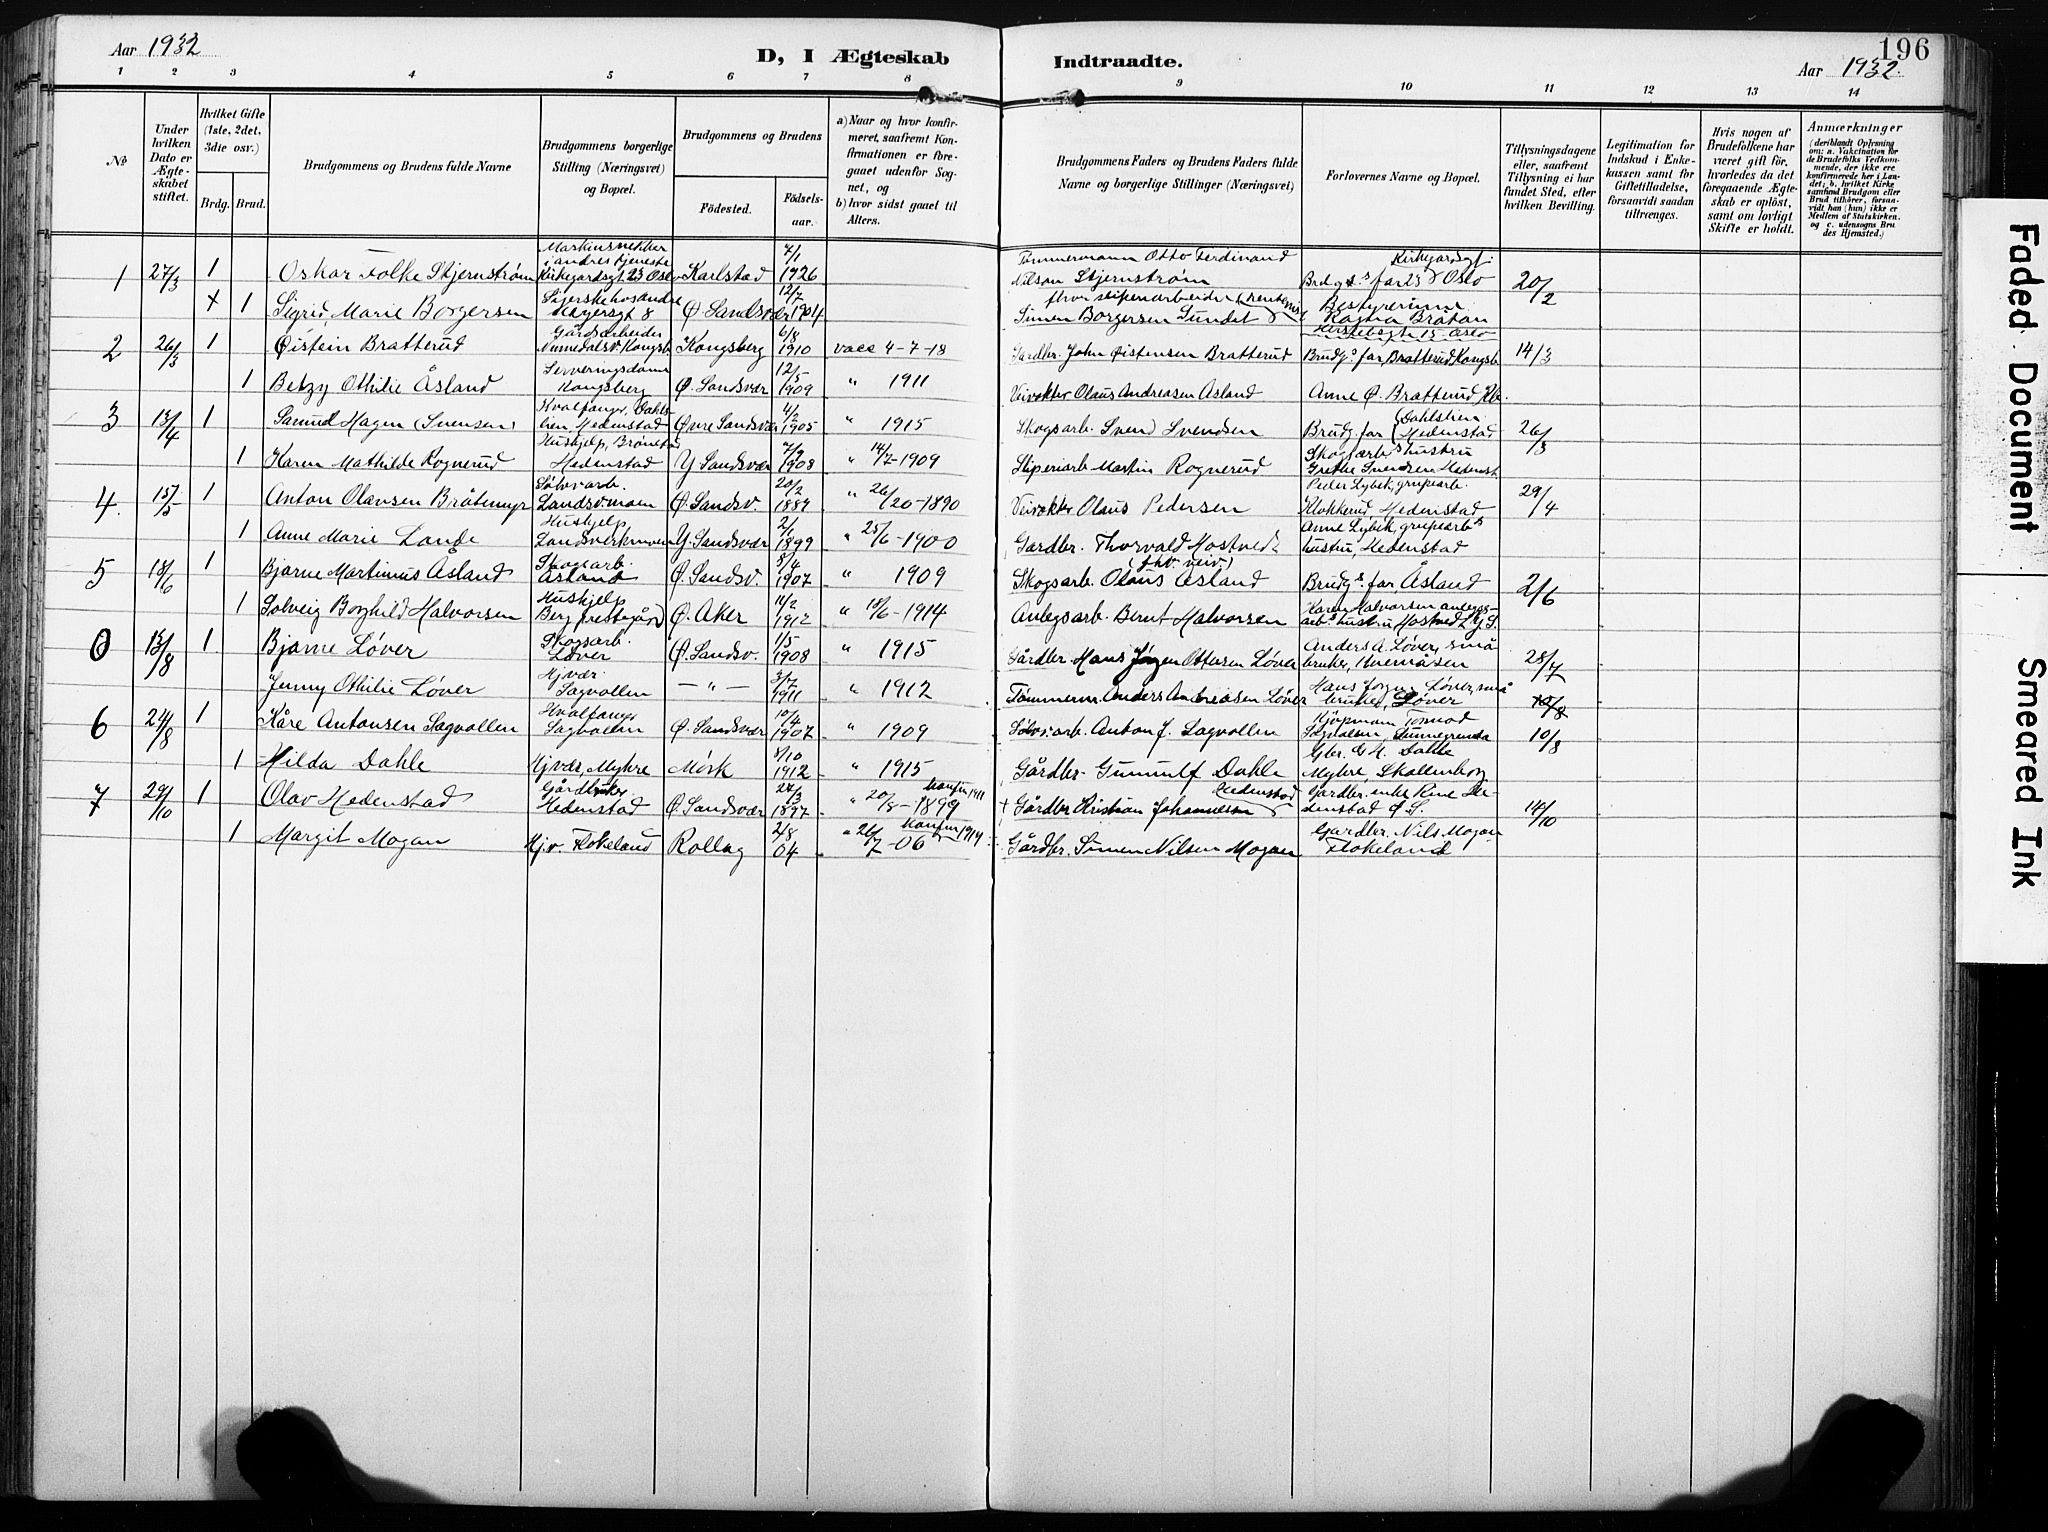 Aar 1932
D, I Ægteskab Indtraadte.
196
Aar 1932.
1 2 3 4 5 6 7 8 9 10 11 12 13 14
No
Under hvilken Dato er Ægteskabet stiftet.
Hvilket Gifte (1ste, 2det, 3die osv.)
Brdg. Brud.
Brudgommens og Brudens fulde Navne
Brudgommens borgerlige Stilling (Næringsvei) og Bopæl.
Brudgommens og Brudens
Fødested. Fødselsaar.
a) Naar og hvor konfirmeret, saafremt Konfirmationen er foregaaet udenfor Sognet, og
b) hvor sidst gaaet til Alters.
Brudgommens Faders og Brudens Faders fulde Navne og borgerlige Stillinger (Næringsvei)
Forlovernes Navne og Bopæl.
Tillysningsdagene eller, saafremt Tillysning ei har fundet Sted, efter hvilken Bevilling.
Legitimation for Indskud i Enkekassen samt for Giftetilladelse, forsaavidt saadan tiltrænges.
Hvis nogen af Brudefolkene har været gift før, hvorledes da det foregaaende Ægteskab er opløst, samt om lovligt Skifte er holdt.
Anmærkninger (deriblandt Oplysning om: a. Vakcination for de Brudefolks Vedkommende, der ikke ere konfirmerede her i Landet; b. hvilket Kirkesamfund Brudgom eller Brud tilhører, forsaavidt han (hun) ikke er Medlem af Statskirken, og c. udensogns Brudes Hjemsted.)
1 27/3 1 Oskar Folke Stjernstrøm i andres tjeneste Kirkegardsgt 23 Oslo Karlstad 7/1 1926 Tømmermann Otto Ferdinand Nilson Stjernstrøm Brdg.s far Kirkegardsgt. 23 Oslo 20/2
x 1 Sigrid Marie Borgersen 8 Ø. Sandsvær 12/7 1904 Simen Borgersen Sundet Bestyrerinne Ragna Bråtan 15 Oslo
2 26/3 1 Øistein Bratterud Gårdsarbeider Kongsb. Kongsberg 6/8 1910 vacc 4-7-18 Gardbr. John Øistensen Bratterud Brudg.s far, Bratterud Kongsb. 14/3
1 Betzy Othilie Åsland Serveringsdame Kongsberg Ø. Sandsvær 12/5 1909 " 1911 Veivokter Olaus Andreasen Åsland Anne Ø. Bratterud, Kbg.
3 13/4 1 Samund Hagen (Svensen) Hvalfanger, Dahlstien, Hedenstad Øvre Sandsvær 4/2 1905 " 1915 Skogsarb. Svend Svendsen Brudg. far (Dahlstien Hedenstad 26/3
1 Karen Mathilde Rognerud Huskjelp, Hedenstad Y. Sandsvær 7/9 1908 " 14/7-1909 Sliperiarb. Martin Rognerud Skogsarb.s hustru Grethe Svendsen Hedenst.
4. 15/5 1 Anton Olausen Bråtemyr Sølvv.arb. Ø. Sandsv. 20/2 1889 " 26/20-1890 Veivokter Olaus Pedersen Peder Lybek, grupearb. Klokkerud Hedenstad 29/4
1 Anne Marie Lande Huskjelp Y. Sandsvær 1899 " 25/6-1900 Gardbr. Thorvald Hostvedt Anne Lybek, grupearb.s hustru, Hedenstad
5 18/6 1 Bjarne Martinus Åsland Skogsarb. Åsland Ø. Sandsv. 8/4 1907 " 1909 Skogsarb. (fhv. veiv.) Olaus Åsland Brudg.s far, Åsland 2/6
1 Solveig Borghild Halvorsen Huskjelp Berg prestegård Ø. Aker 11/2 1912 " 18/6-1914 Anlegsarb. Bernt Halvorsen Karen Halvorsen anlegsarb.s hustru Hostvedt Y.S.
0 13/8 1 Bjarne Løver Skogsarb. Løver Ø. Sandsv. 1/5 1908 " 1915 Gårdbr. Hans Jørgen Ottersen Løver Anders A. Løver, småbruker, 28/7
Jenny Othilie Løver Hjvær. Sagvollen — " — 3/7 1911 " 1912 Tømmerm. Anders Andreasen Løver Hans Jørgen Løver, småbruker, Løver
6 21/8 1 Kåre Antonsen Sagvollen Hvalfanger Sagvollen Ø. Sandsvær 10/4 1907 " 1909 Sølvv.arb. Anton J. Sagvollen Kjøpmann Tormod 10/8
1 Hilda Dahle Hjvær, Myhre Mørk 8/10 1912 " 1915 Gårdbr. Gunnulf Dahle Gbr. G. H. Dahle Myhre, Skollenborg
7 29/10 1 Olav Hedenstad Gårdbruker Hedenstad Ø. Sandsvær 24/3 1897 " 20/8-1899 konfir 1911 † Gårdbr. Kristian Johannesen Hedenstad Gardbr. enke Rine Hedenstad Ø.S. 14/10
1 Margit Mogan Hjv. Flokeland Rollag 2/8 04 " 26/7-06 Konfir 1919 Gårdbr. Simen Nilsen Mogan Gardbr. Nils Mogan Flokeland
Faded Document
Smeared Ink